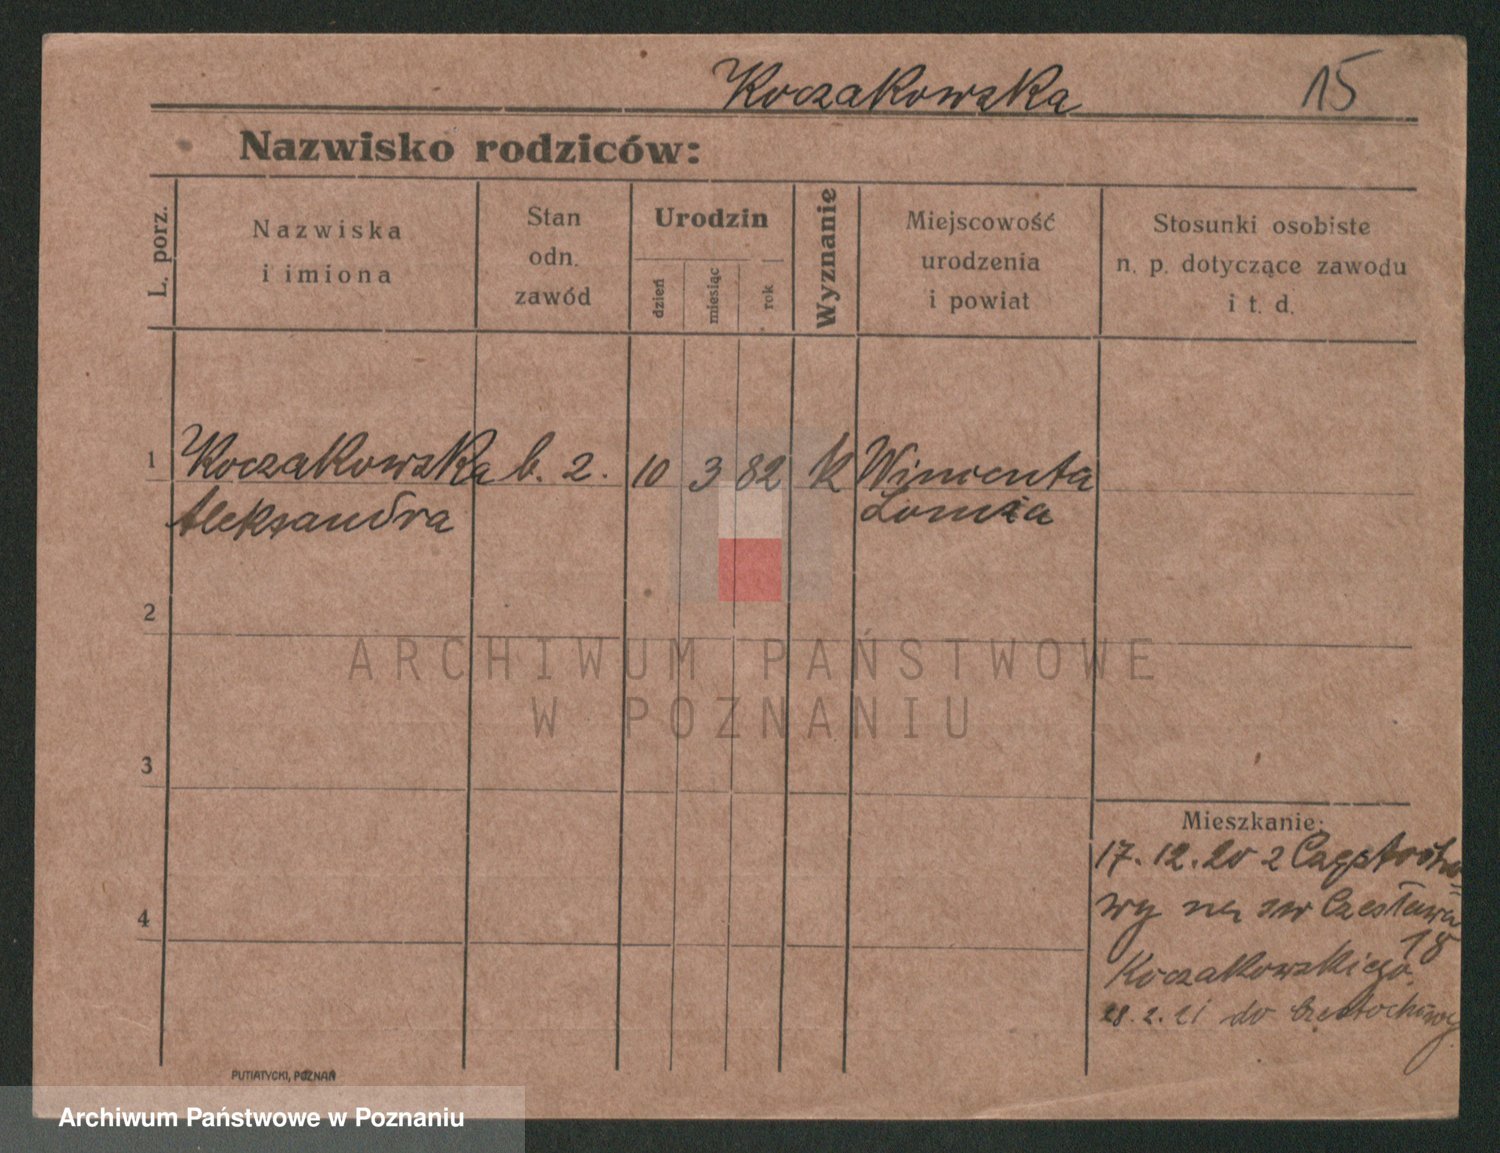 Koczakowska 15
Nazwisko rodziców:
L. porz.
Nazwiska
i imiona
Stan
odn.
zawód
Urodzin
dzień
miesiąc
rok
Wyznanie
Miejscowość
urodzenia
i powiat
Stosunki osobiste
n. p. dotyczące zawodu
i t. d.
1 Koczakowska b. z. 10 3 82 k Wimenta
Aleksandra Łomża
2
ARCHIWUM PAŃSTWOWE
W POZNANIU
3
Mieszkanie:
17. 12. 20 z Częstocho=
wy na św Czesława
18
4
Koczakowskiego.
28. 2. 21 do Częstochowy
PUTIATYCKI, POZNAŃ
Archiwum Państwowe w Poznaniu